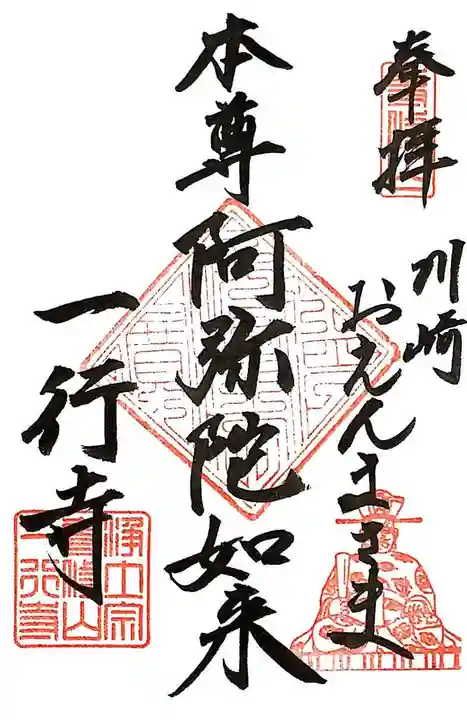 奉拝
川崎
おえんまさま
本尊阿弥陀如来
一行寺
浄土宗
專修山
一行寺